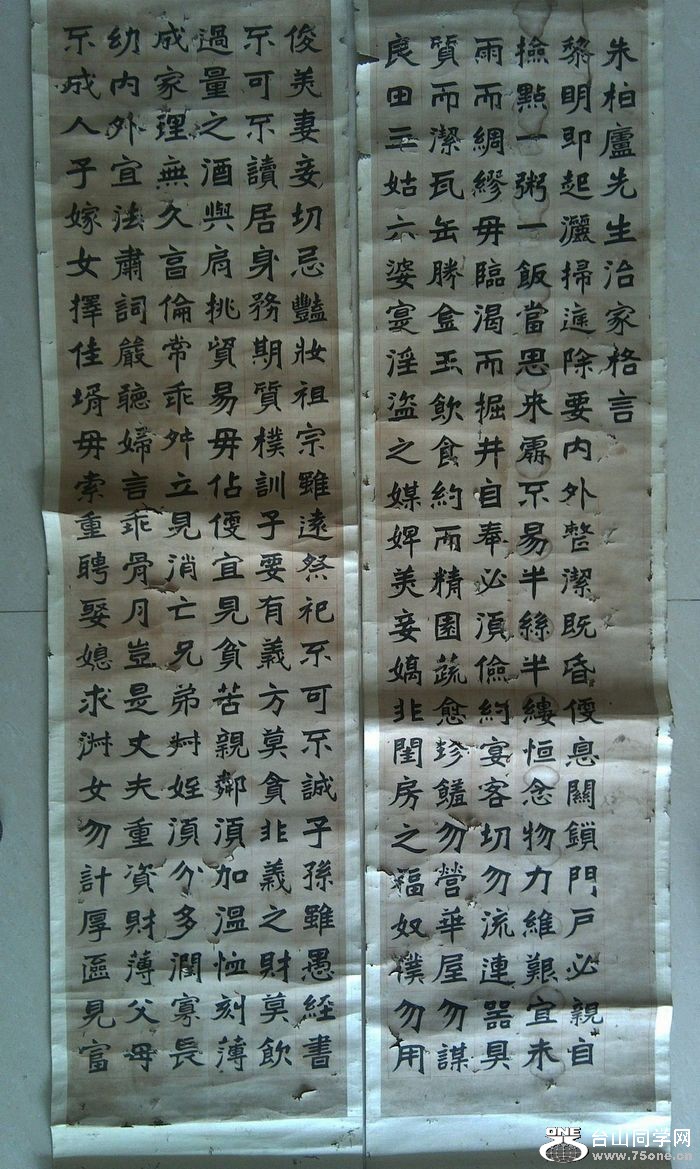 朱柏廬先生治家格言
黎明即起灑掃庭除要内外整潔既昏便息關鎖門戶必親自
撿點一粥一飯當思来處不易半絲半縷恒念物力維艱宜未
雨而綢繆毋臨渴而掘井自奉必須儉約宴客切勿流連器具
質而潔瓦缶勝金玉飲食約而精園蔬愈珍饈勿營華屋勿謀
良田三姑六婆寔淫盜之媒婢美妾嬌非閨房之福奴僕勿用
俊美妻妾切忌豔妝祖宗雖遠祭祀不可不誠子孫雖愚經書
不可不讀居身務期質樸訓子要有義方莫貪非義之財莫飲
過量之酒與肩挑貿易毋佔便宜見貧苦親鄰須加溫恤刻薄
成家理無久享倫常乖舛立見消亡兄弟叔姪須分多潤寡長
幼内外宜法肅詞嚴聽婦言乖骨肉豈是丈夫重資財薄父母
不成人子嫁女擇佳壻毋索重聘娶媳求淑女勿計厚匳見富
ONE
台山同学网
www.75one.cn